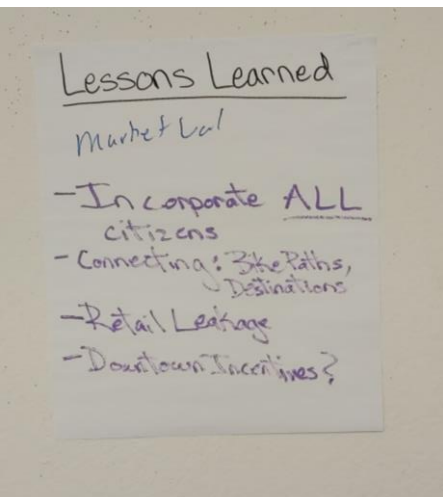 Lessons Learned
Market Val
- Incorporate ALL
citizens
- Connecting: Bike Paths,
Destinations
- Retail Leakage
- Downtown Incentives?